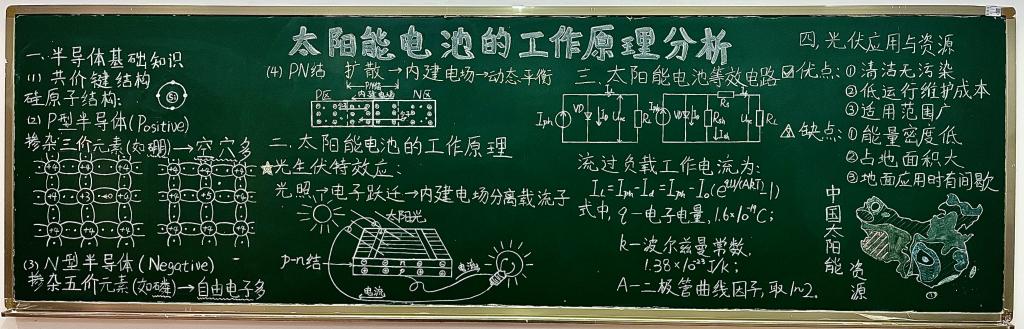 太阳能电池的工作原理分析
一.半导体基础知识
(1) 共价键结构
硅原子结构:
Si
(2) P型半导体(Positive)
掺杂三价元素(如硼)→空穴多
(3) N型半导体(Negative)
掺杂五价元素(如磷)→自由电子多
(4) PN结 扩散→内建电场→动态平衡
PN结
P区 内建电场 N区
二.太阳能电池的工作原理
☆光生伏特效应:
光照→电子跃迁→内建电场分离载流子
太阳光
p-n结
电流
电流
三.太阳能电池等效电路
Iph VD ID RL
Iph VD Rsh Rs Ish RL
流过负载工作电流为:
IL=Iph-Id=Iph-I0(e^qU/(AkT)-1)
式中, q-电子电量, 1.6×10⁻¹⁹C;
k-波尔兹曼常数,
1.38×10⁻²³J/k;
A-二极管曲线因子,取1~2.
四.光伏应用与资源
☑优点: ①清洁无污染
②低运行维护成本
③适用范围广
⚠缺点: ①能量密度低
②占地面积大
③地面应用时有间歇
中国太阳能
资源